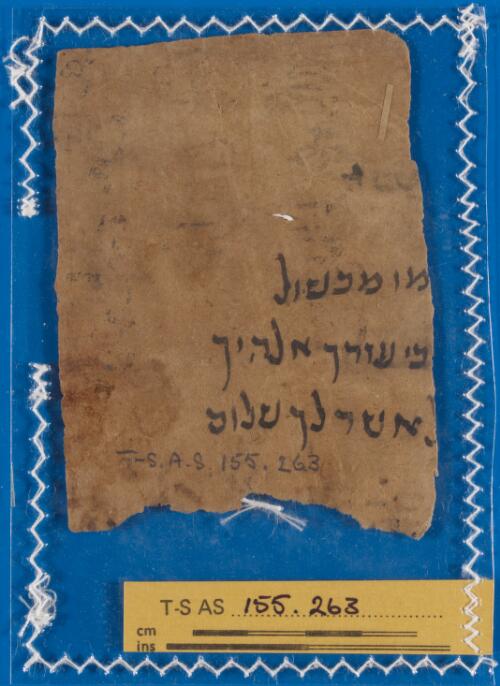 מו מכשול
כי עוזרך אלהיך
ולאשר לך שלום
T-S.A.S. 155.263
T-S AS 155.263
cm
ins